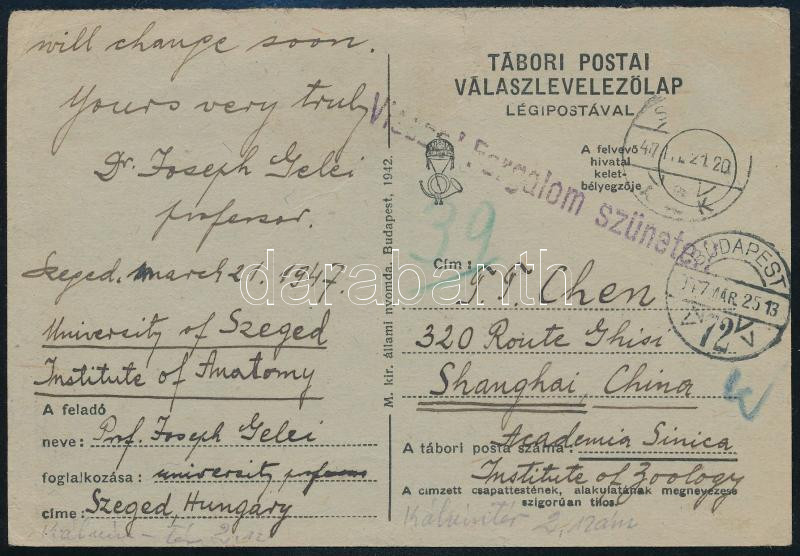 will change soon.
Yours very truly
Dr. Joseph Gelei
professor.
Szeged. March 21. 1947.
University of Szeged
Institute of Anatomy
A feladó
neve: Prof. Joseph Gelei
foglalkozása: university
címe: Szeged, Hungary
M. kir. állami nyomda. Budapest, 1942.
TÁBORI POSTAI
VÁLASZLEVELEZŐLAP
LÉGIPOSTÁVAL
A felvevő
hivatal
kelet-
bélyegzője
Vissza! Forgalom szünetel
39
BUDAPEST
947 MÁR. 25 13
72
Cím: T. T. Chen
320 Route Ghisi
Shanghai, China
Academia Sinica
A tábori posta száma:
Institute of Zoology
A címzett csapattestének, alakulatának megnevezése
szigorúan tilos.
Kálvin tér 2. szám
darabanth
auctions